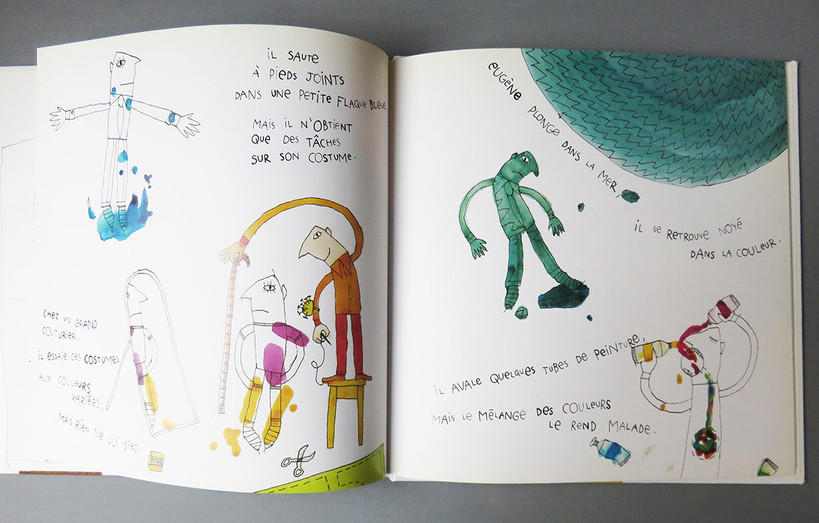 iL SAUTE
À PiEDS JOiNTS
DANS UNE PETiTE FLAQUE BLEUE
MAiS iL N'OBTiENT
QUE DES TÂCHES
SUR SON COSTUME.
CHEZ UN GRAND
COUTURiER
iL ESSAiE DES COSTUMES
AUX COULEURS
VARiÉES,
MAiS RiEN NE LUi SiED.
EUGÈNE PLONGE DANS LA MER
iL SE RETROUVE NOYÉ
DANS LA COULEUR.
iL AVALE QUELQUES TUBES DE PEiNTURE,
MAiS LE MÉLANGE DES COULEURS
LE REND MALADE.